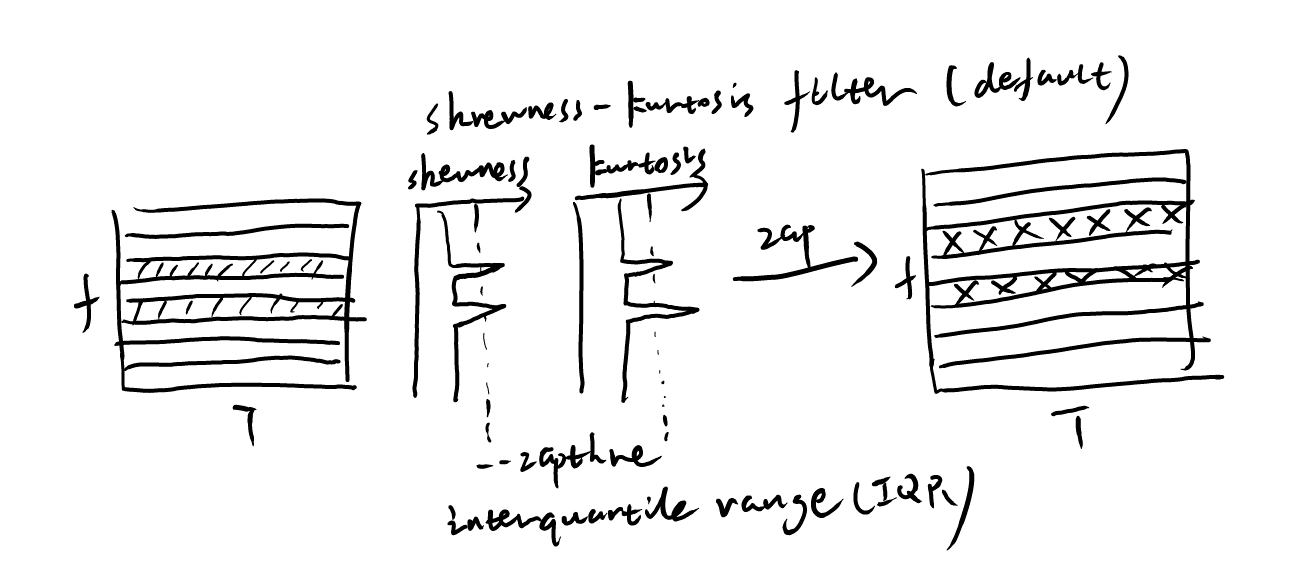 skrewness - kurtosis filter (default)
skewness
kurtosis
f
T
zap
f
T
--- zapthre
interquartile range (IQR)